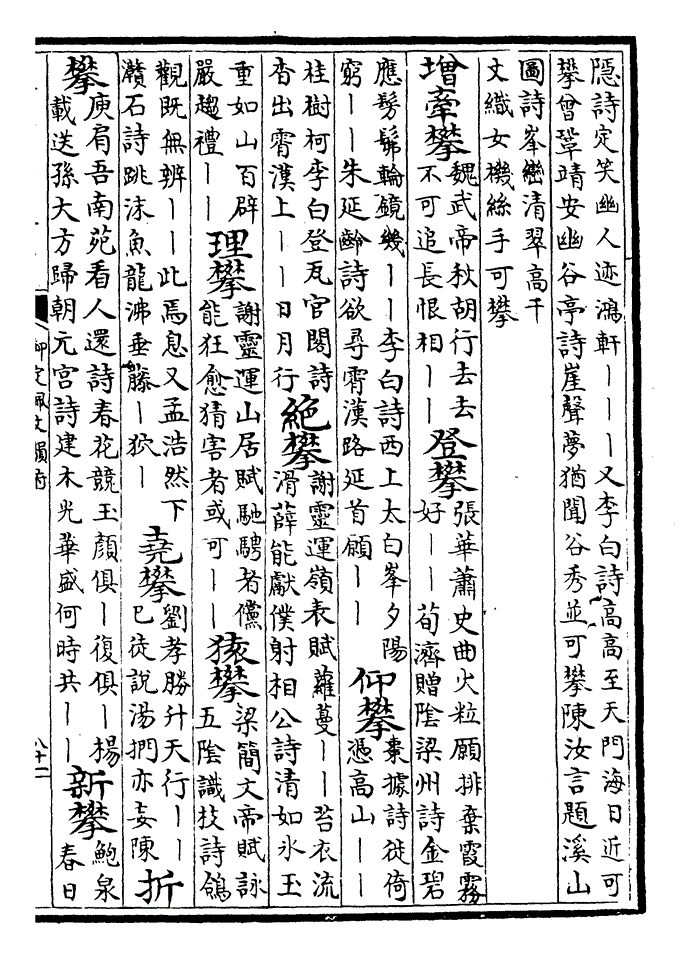 隱詩定笑幽人迹鴻軒丨丨丨又李白詩高高至天門海日近可
攀曾鞏靖安幽谷亭詩崖聲夢猶聞谷秀並可攀陳汝言題溪山
圖詩峯巒清翠高千
文織女機絲手可攀
增牽攀
魏武帝秋胡行去去
不可追長恨相丨丨
登攀
張華蕭史曲火粒願排棄霞霧
好丨丨荀濟贈陰梁州詩金碧
應髣髴輪鏡幾丨丨李白詩西上太白峯夕陽
窮丨丨朱延齡詩欲尋霄漢路延首願丨丨
仰攀
棗據詩徙倚
憑高山丨丨
桂樹柯李白登瓦官閣詩
杳出霄漢上丨丨日月行
絕攀
謝靈運嶺表賦蘿蔓丨丨苔衣流
滑薛能獻僕射相公詩清如氷玉
重如山百辟
嚴趨禮丨丨
理攀
謝靈運山居賦馳騁者儻
能狂愈猜害者或可丨丨
猿攀
梁簡文帝賦詠
五陰識枝詩鴿
觀既無辨丨丨此焉息又孟浩然下
灨石詩跳沫魚龍沸垂藤丨狖丨
堯攀
劉孝勝升天行丨丨
已徒說湯捫亦妄陳
折
攀
庾肩吾南苑看人還詩春花競玉顏俱丨復俱丨楊
載送孫大方歸朝元宮詩建木光華盛何時共丨丨
新攀
鮑泉
春日
御定佩文韻府
八十一